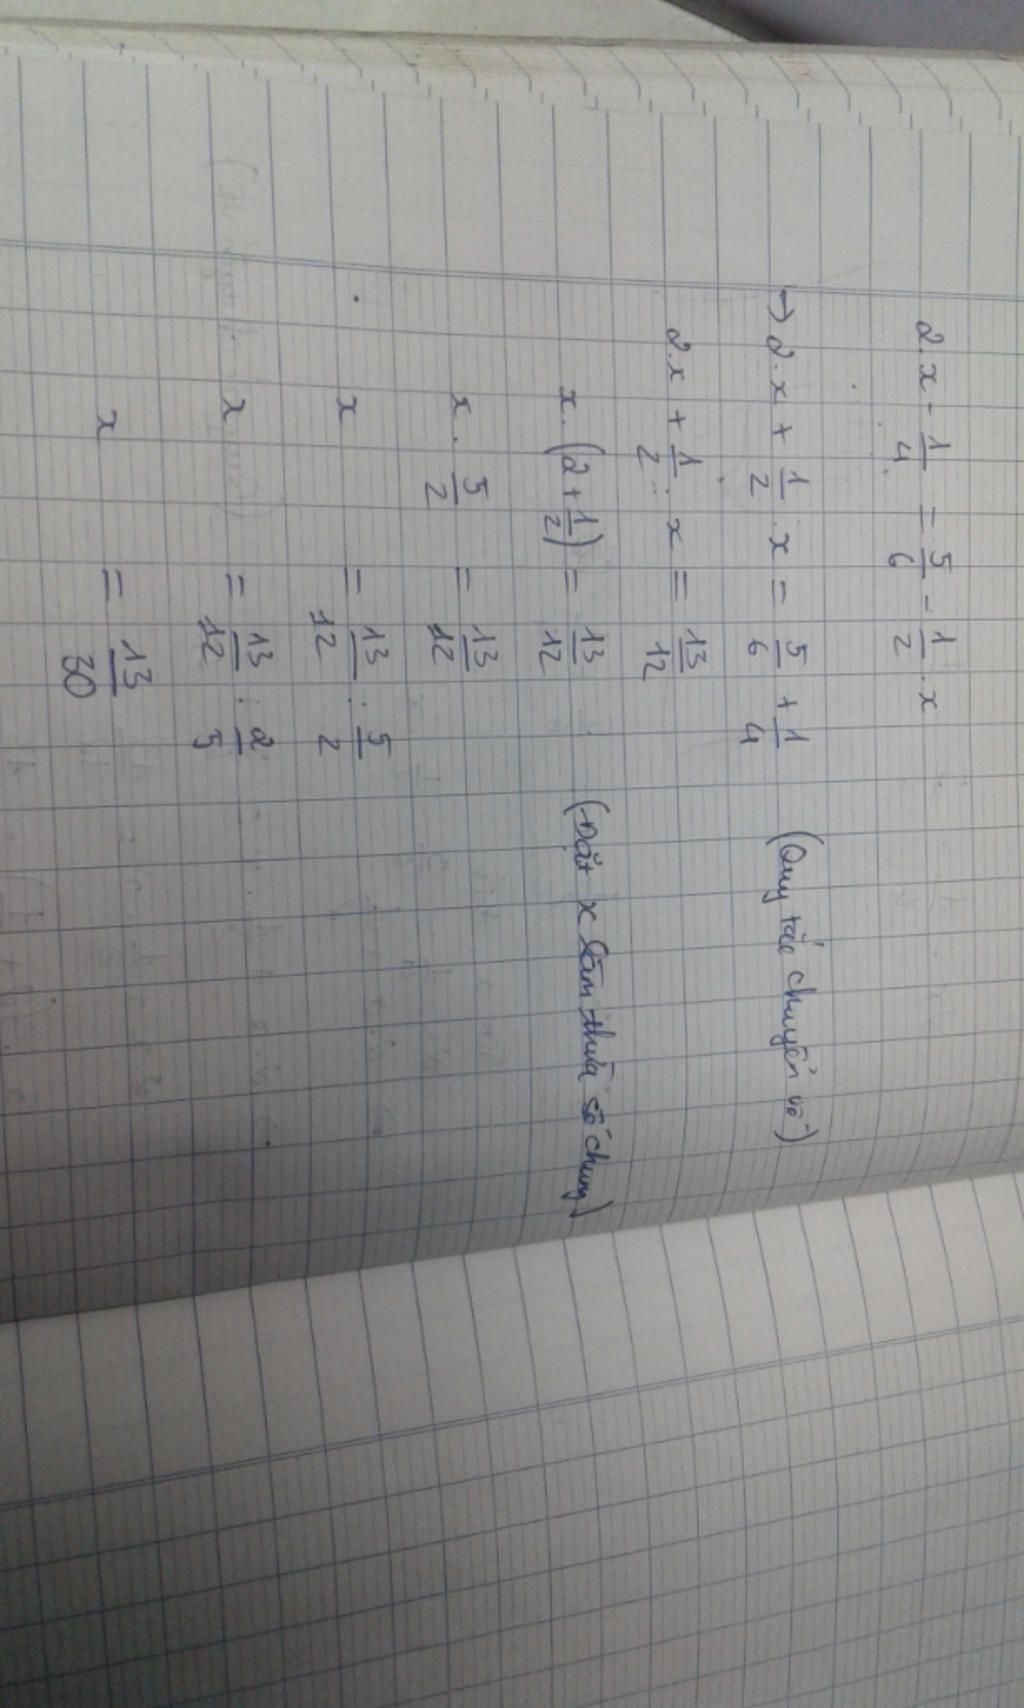 2.x - 1/4 = 5/6 - 1/2 . x
→ 2.x + 1/2 . x = 5/6 + 1/4 (Quy tắc chuyển vế)
2.x + 1/2 . x = 13/12
x. (2 + 1/2) = 13/12 (Đặt x làm thừa số chung)
x . 5/2 = 13/12
x = 13/12 : 5/2
x = 13/12 . 2/5
x = 13/30